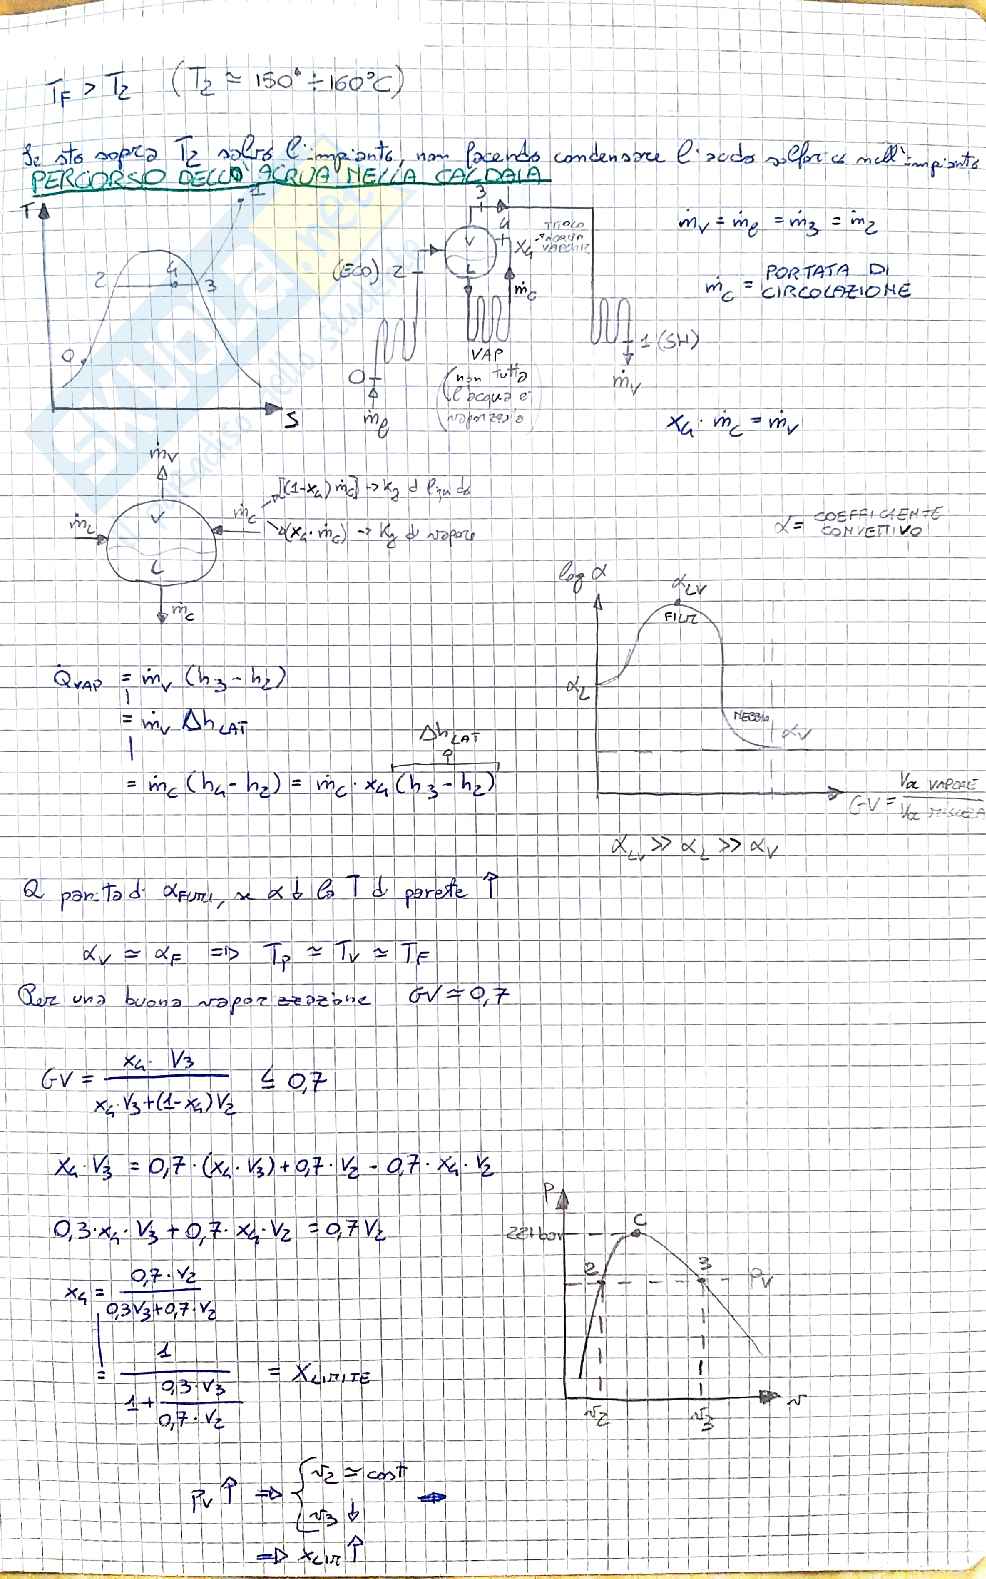 T_F > T_2 (T_2 ≃ 150° ÷ 160°C)
Se sto sopra T_2 salvo l'impianto, non facendo condensare l'acido solforico nell'impianto
PERCORSO DELL'ACQUA NELLA CALDAIA
T
1
2
4
3
0
S
3
4
V
L
X_4
TITOLO
VAPORE
(ECO) 2
ṁ_c
VAP
(non tutta
l'acqua è
vaporizzata)
0
ṁ_e
1 (SH)
ṁ_v
ṁ_v = ṁ_e = ṁ_3 = ṁ_2
ṁ_c = PORTATA DI
CIRCOLAZIONE
x_4 · ṁ_c = ṁ_v
ṁ_v
ṁ_c → [(1-x_4) ṁ_c] → Kg di liquido
(x_4 · ṁ_c) → Kg di vapore
V
L
ṁ_c
α = COEFFICIENTE
CONVETTIVO
log α
α_LV
FILM
α_L
NEBBIA
α_V
GV = Vol VAPORE / Vol MISCELA
α_LV >> α_L >> α_V
Q̇_VAP = ṁ_v (h_3 - h_2)
= ṁ_v Δh_LAT
Δh_LAT
= ṁ_c (h_4 - h_2) = ṁ_c · x_4 (h_3 - h_2)
a parità di α_FUMI, se α ↓ la T di parete ↑
α_V ≃ α_F ⇒ T_P ≃ T_V ≃ T_F
Per una buona vaporizzazione GV ≃ 0,7
GV = x_4 · V_3 / x_4 · V_3 + (1-x_4) V_2 ≤ 0,7
x_4 · V_3 = 0,7 · (x_4 · V_3) + 0,7 · V_2 - 0,7 · x_4 · V_2
0,3 · x_4 · V_3 + 0,7 · x_4 · V_2 = 0,7 V_2
x_4 = 0,7 · V_2 / 0,3 V_3 + 0,7 · V_2
= 1 / 1 + 0,3 · V_3 / 0,7 · V_2 = X_LIMITE
P
221 bar
C
2
3
P_V
v_2
v_3
v
P_V ↑ ⇒ { v_2 ≃ cost
v_3 ↓
⇒ x_LIM ↑